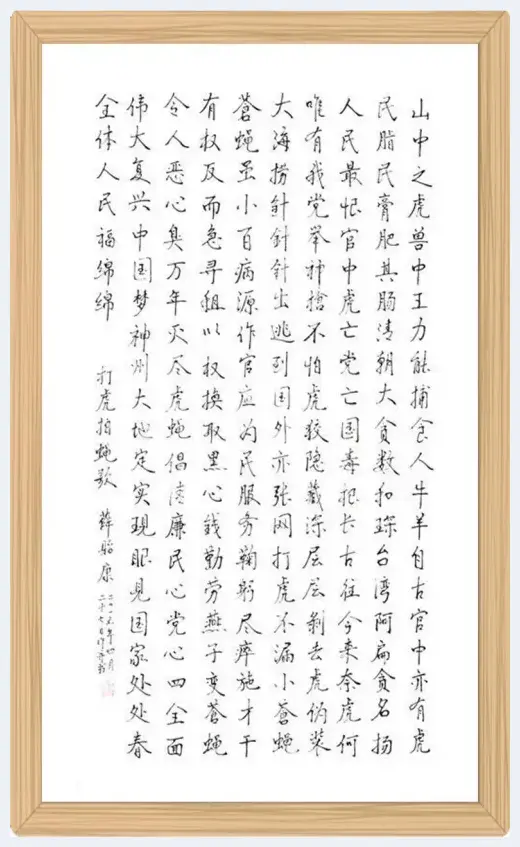 山中之虎兽中王力能捕食人牛羊自古官中亦有虎
民脂民膏肥其肠清朝大贪数和珅台湾阿扁贪名扬
人民最恨官中虎亡党亡国毒根长古往今来奈虎何
唯有我党举神搶不怕虎狡隐藏深层层剝去虎伪装
大海捞針針針出逃到国外亦张网打虎不漏小蒼蝇
蒼蝇虽小百病源作官应为民服务鞠躬尽瘁施才干
有权反而急寻租以权换取黑心钱勤劳燕子变蒼蝇
令人恶心臭万年灭尽虎蝇倡清廉民心党心四全面
伟大复兴中国梦神州大地定实現眼見国家处处春
全体人民福绵绵 打虎拍蝇歌 薛贻康
二〇一五年四月
二十七日作